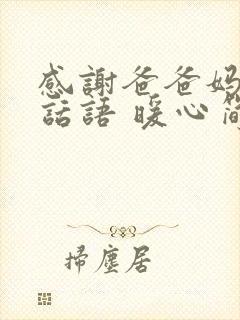 感謝爸爸媽
話語 暖心簡
掃塵居